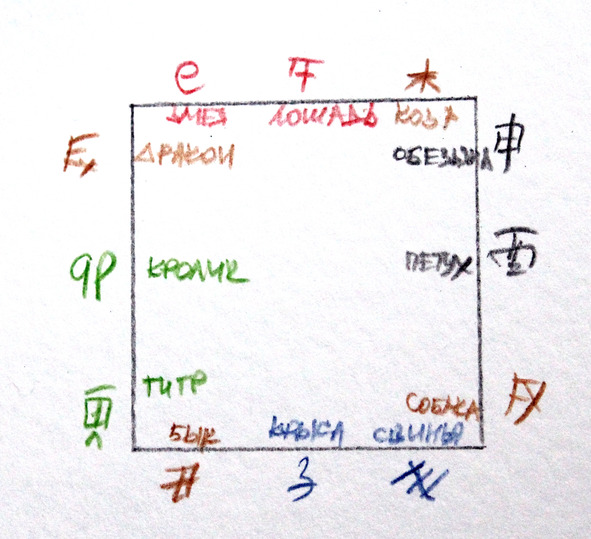 巳 午 未
ЗМЕЯ ЛОШАДЬ КОЗА
辰 ДРАКОН ОБЕЗЬЯНА 申
卯 КРОЛИК ПЕТУХ 酉
寅 ТИГР СОБАКА 戌
БЫК КРЫСА СВИНЬЯ
丑 子 亥